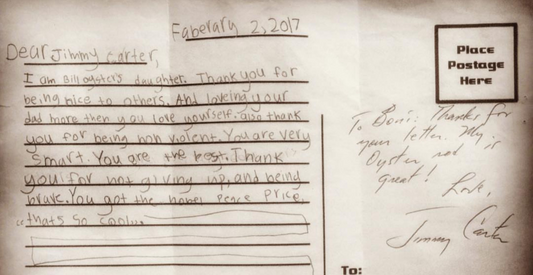 Faberary 2, 2017
Dear Jimmy Carter,
I am Bill oyster's daughter. Thank you for
being nice to others. And loveing your
dad more then you love yourself. also thank
you for being non violent. You are very
Smart. You are the best. Thank
you for not giving up, and being
brave. You got the nobel Peace Price,
thats so cool
Place
Postage
Here
To Thanks for
your letter. My
Oyster is
great!
Love,
Jimmy Carter
To: